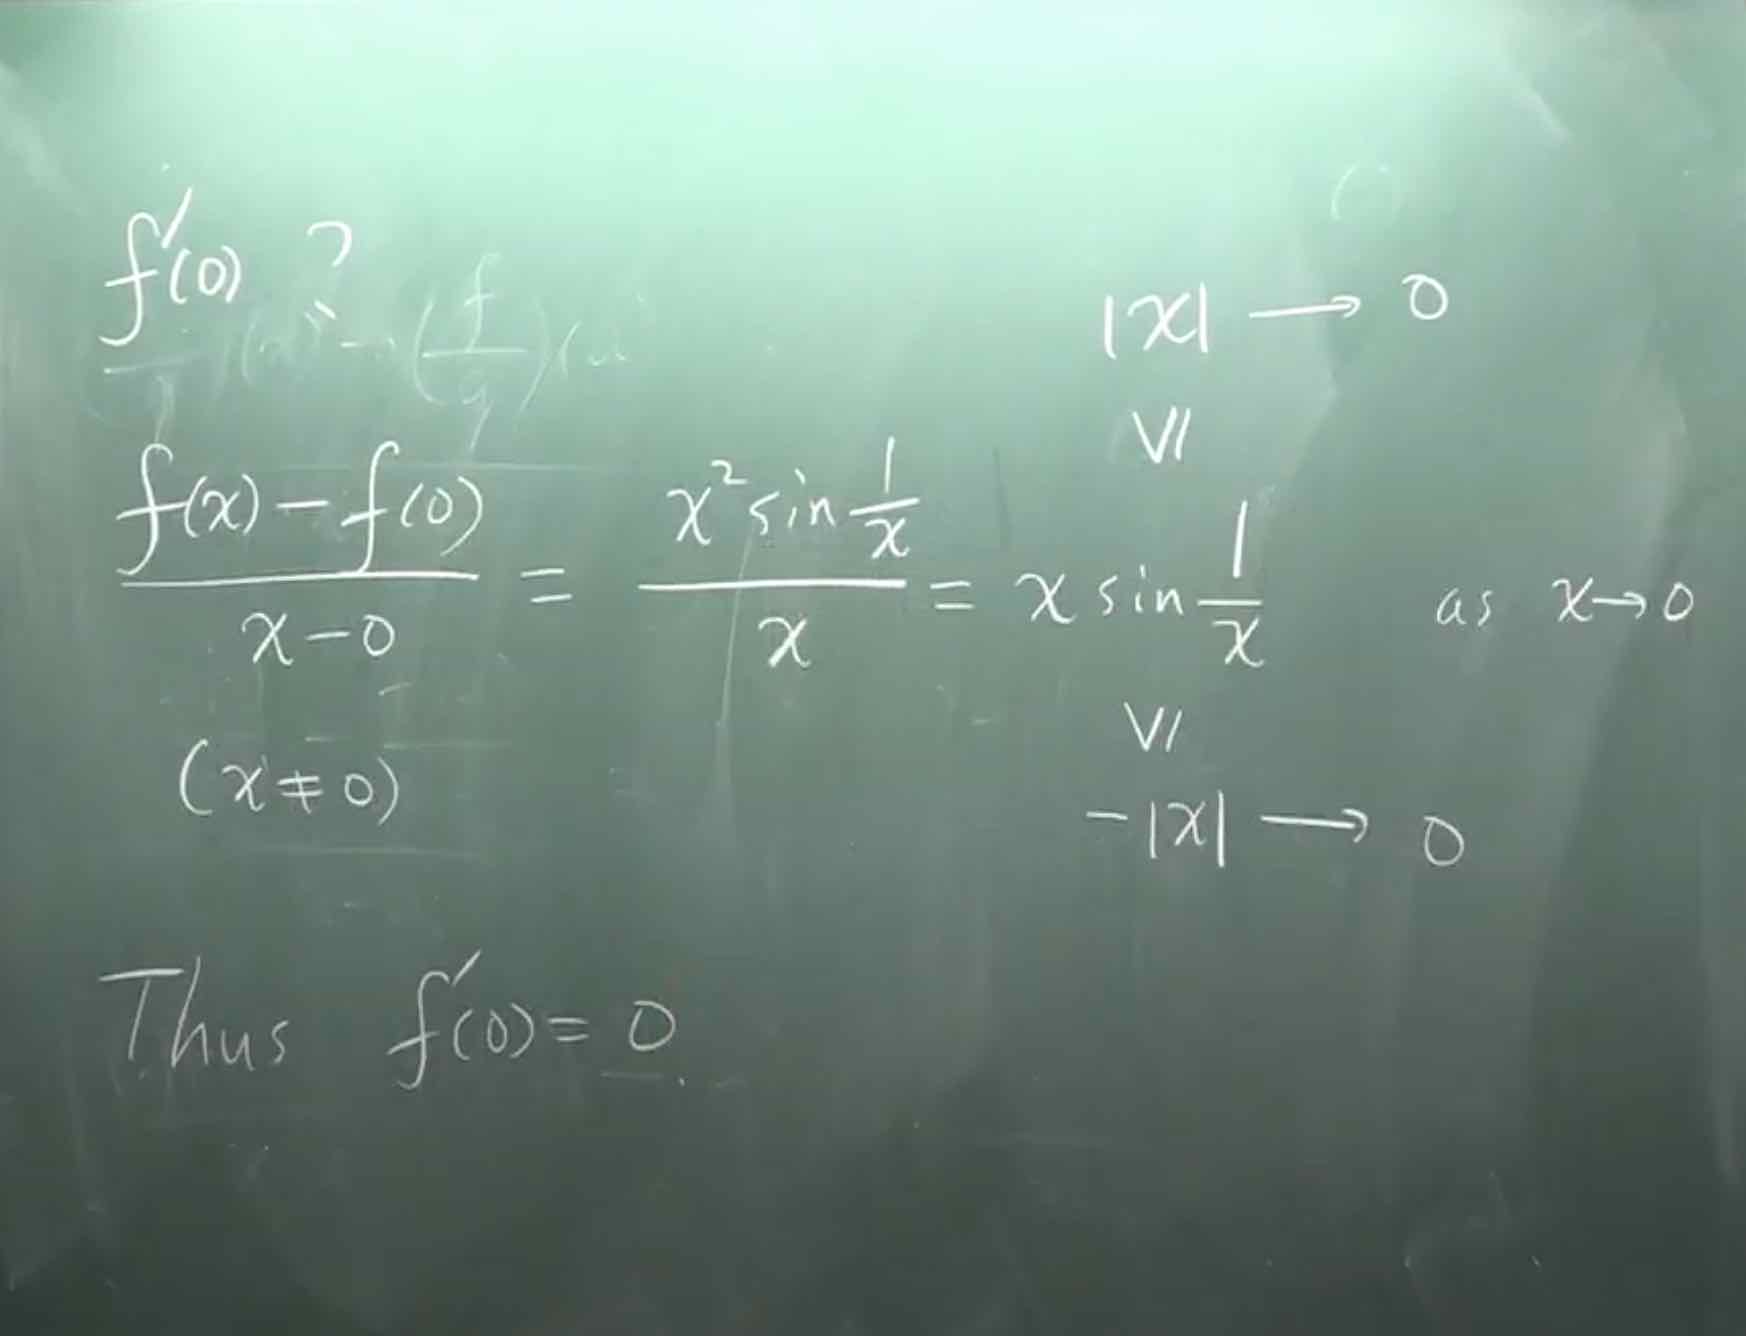 f'(0) ?
|x| → 0
VI
f(x) − f(0) / x − 0 = x² sin 1/x / x = x sin 1/x as x → 0
(x ≠ 0)
VI
−|x| → 0
Thus f'(0) = 0.